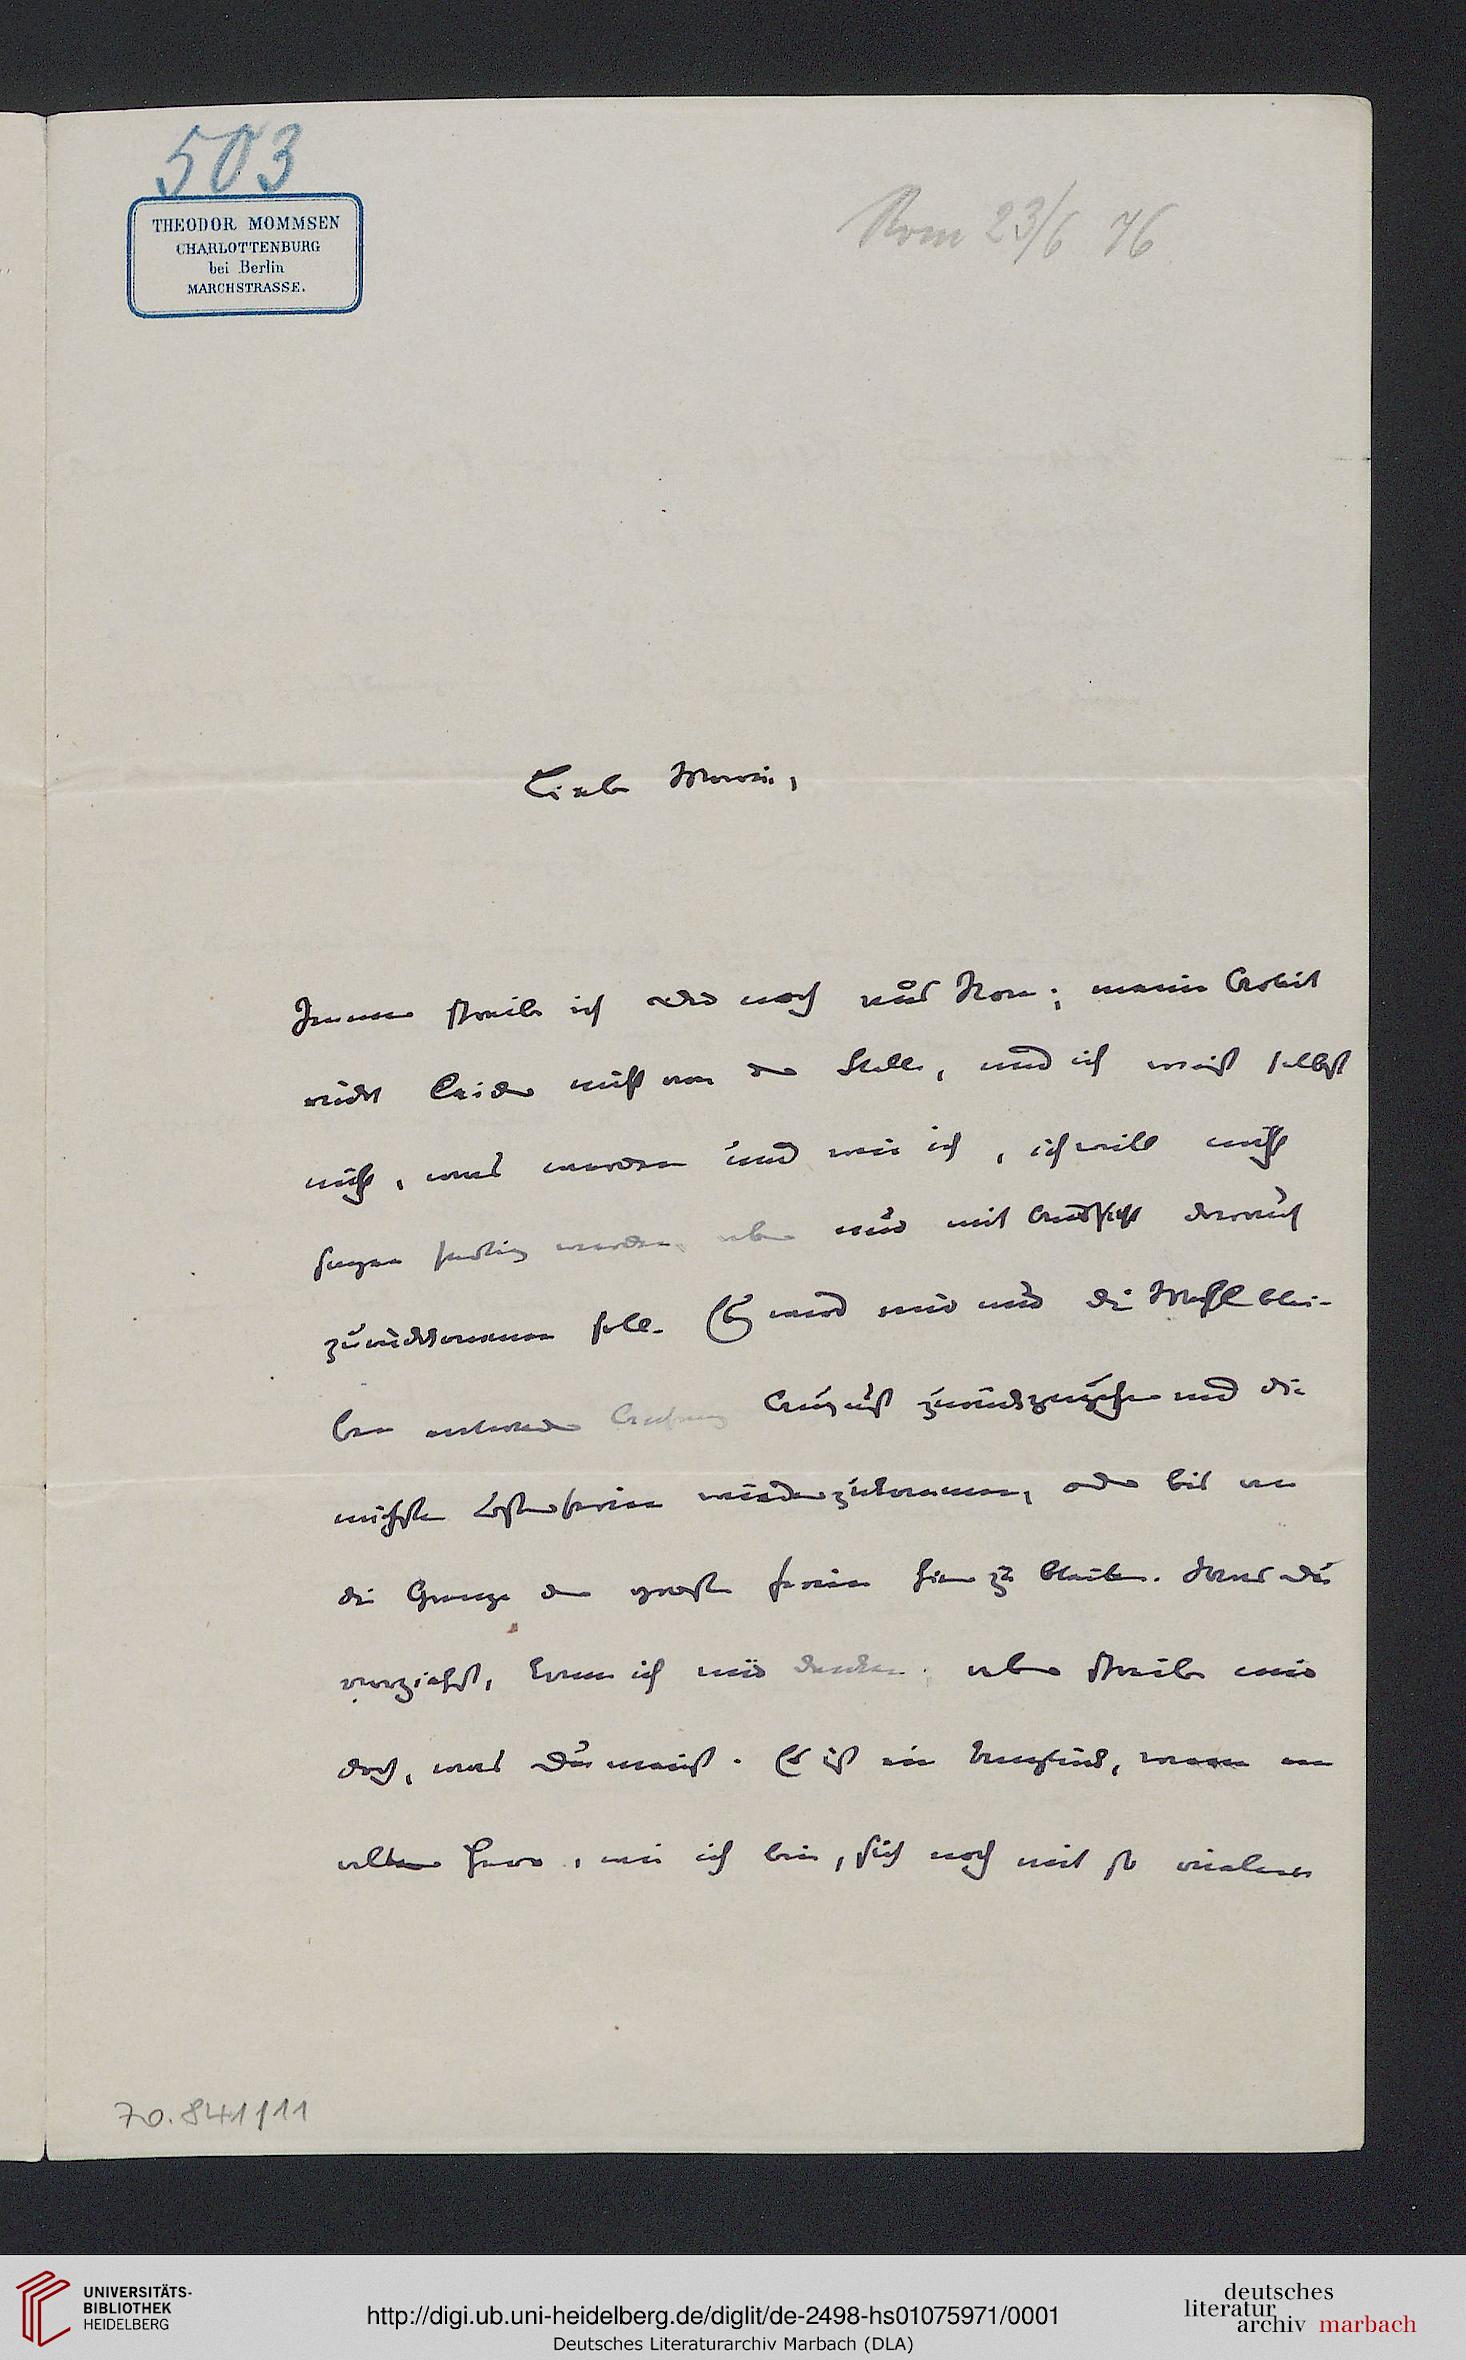 503
THEODOR MOMMSEN
CHARLOTTENBURG
bei Berlin
MARCHSTRASSE.
Rom 23/6 76
Liebe Marie,
Immer schreibe ich Dir noch aus Rom; meine Arbeit
rückt leider nicht von der Stelle, und ich weiß selbst
nicht, was werden und wie ich, ich will nicht
sagen fertig werden, aber nur mit Aussicht darauf
zurückkommen soll. Es wird mir nur die Wahl blei-
ben entweder Anfang August zurückzugehen und die
nächsten Osterferien wiederzukommen, oder bis an
die Grenze der großen Ferien hier zu bleiben. Was Du
vorziehst, kann ich mir denken; aber schreibe mir
doch, was Du meinst. Es ist ein Unglück, wenn ein
alter Herr, wie ich bin, sich noch mit so vielerlei
70.841/11
UNIVERSITÄTS-
BIBLIOTHEK
HEIDELBERG
http://digi.ub.uni-heidelberg.de/diglit/de-2498-hs01075971/0001
Deutsches Literaturarchiv Marbach (DLA)
deutsches
literatur
archiv marbach